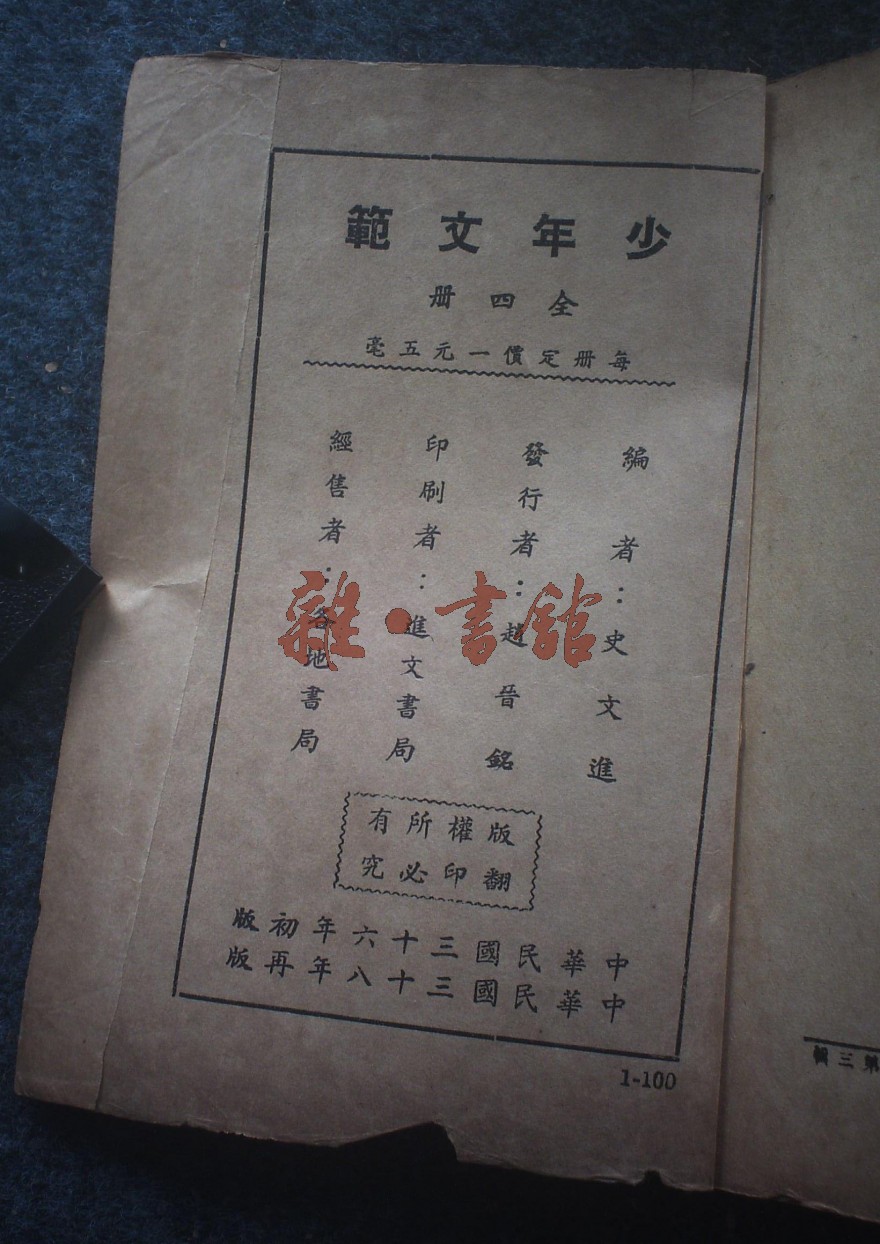 少年文範
全四册
每册定價一元五毫
編者：史文進
發行者：趙晉銘
印刷者：進文書局
經售者：各地書局
版權所有
翻印必究
中華民國三十六年初版
中華民國三十八年再版
1-100
第三輯
雜·書館